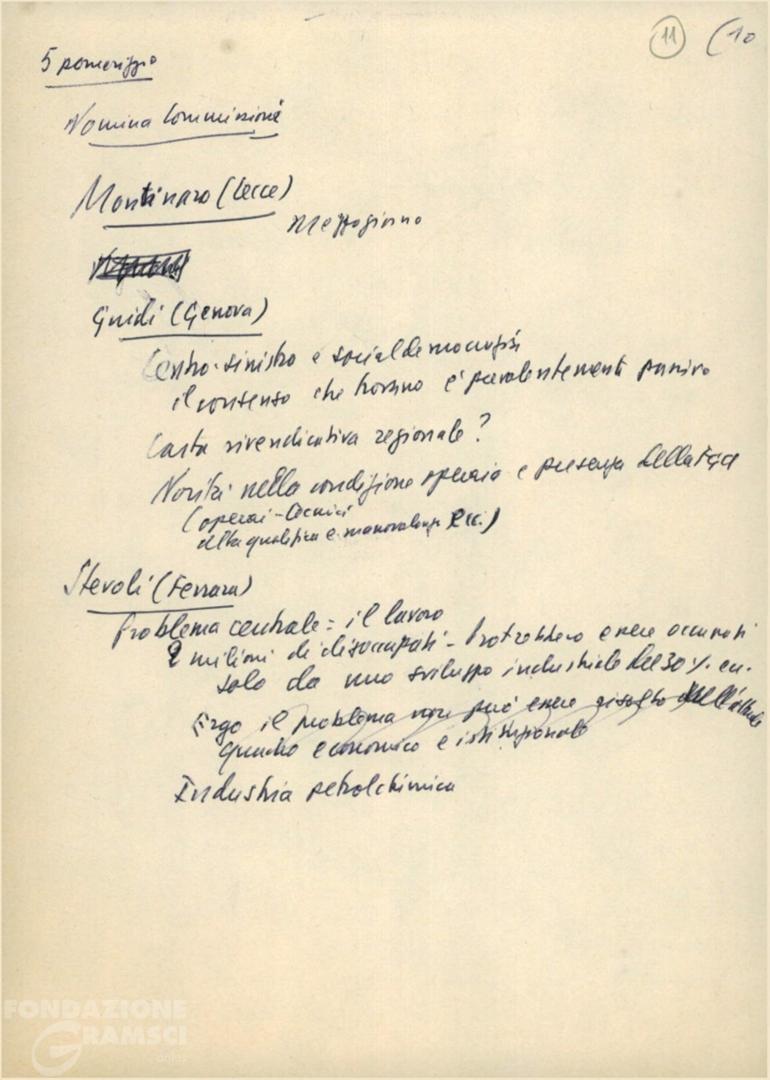 11 (10
5 pomeriggio
Nomina Commissione
Montinaro (Lecce)
Mezzogiorno
Guidi (Genova)
Centro-sinistra e socialdemocrazia
il consenso che trovano è prevalentemente passivo
Carta rivendicativa regionale?
Novità nella condizione operaia e presenza della FGCI
(operai-tecnici
alta qualifica e manovalanza ecc.)
Stevoli (Ferrara)
Problema centrale = il lavoro
2 milioni di disoccupati - Potrebbero essere occupati
solo da uno sviluppo industriale del 30%
Ergo il problema non può essere risolto nell'attuale
quadro economico e istituzionale
Industria petrolchimica
FONDAZIONE
GRAMSCI
onlus